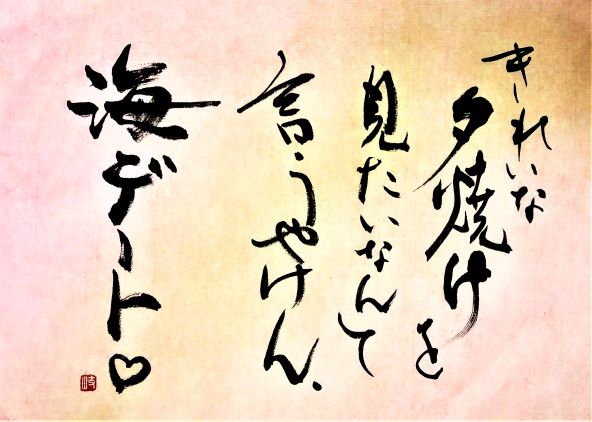 きれいな
夕焼けを
見たいなんて
言うやけん、
海デート♡
岐